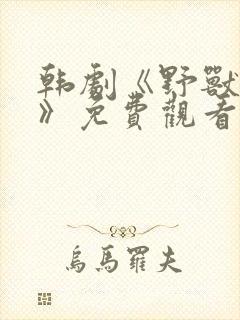 韩劇《野獸
》免費觀看
烏馬羅夫